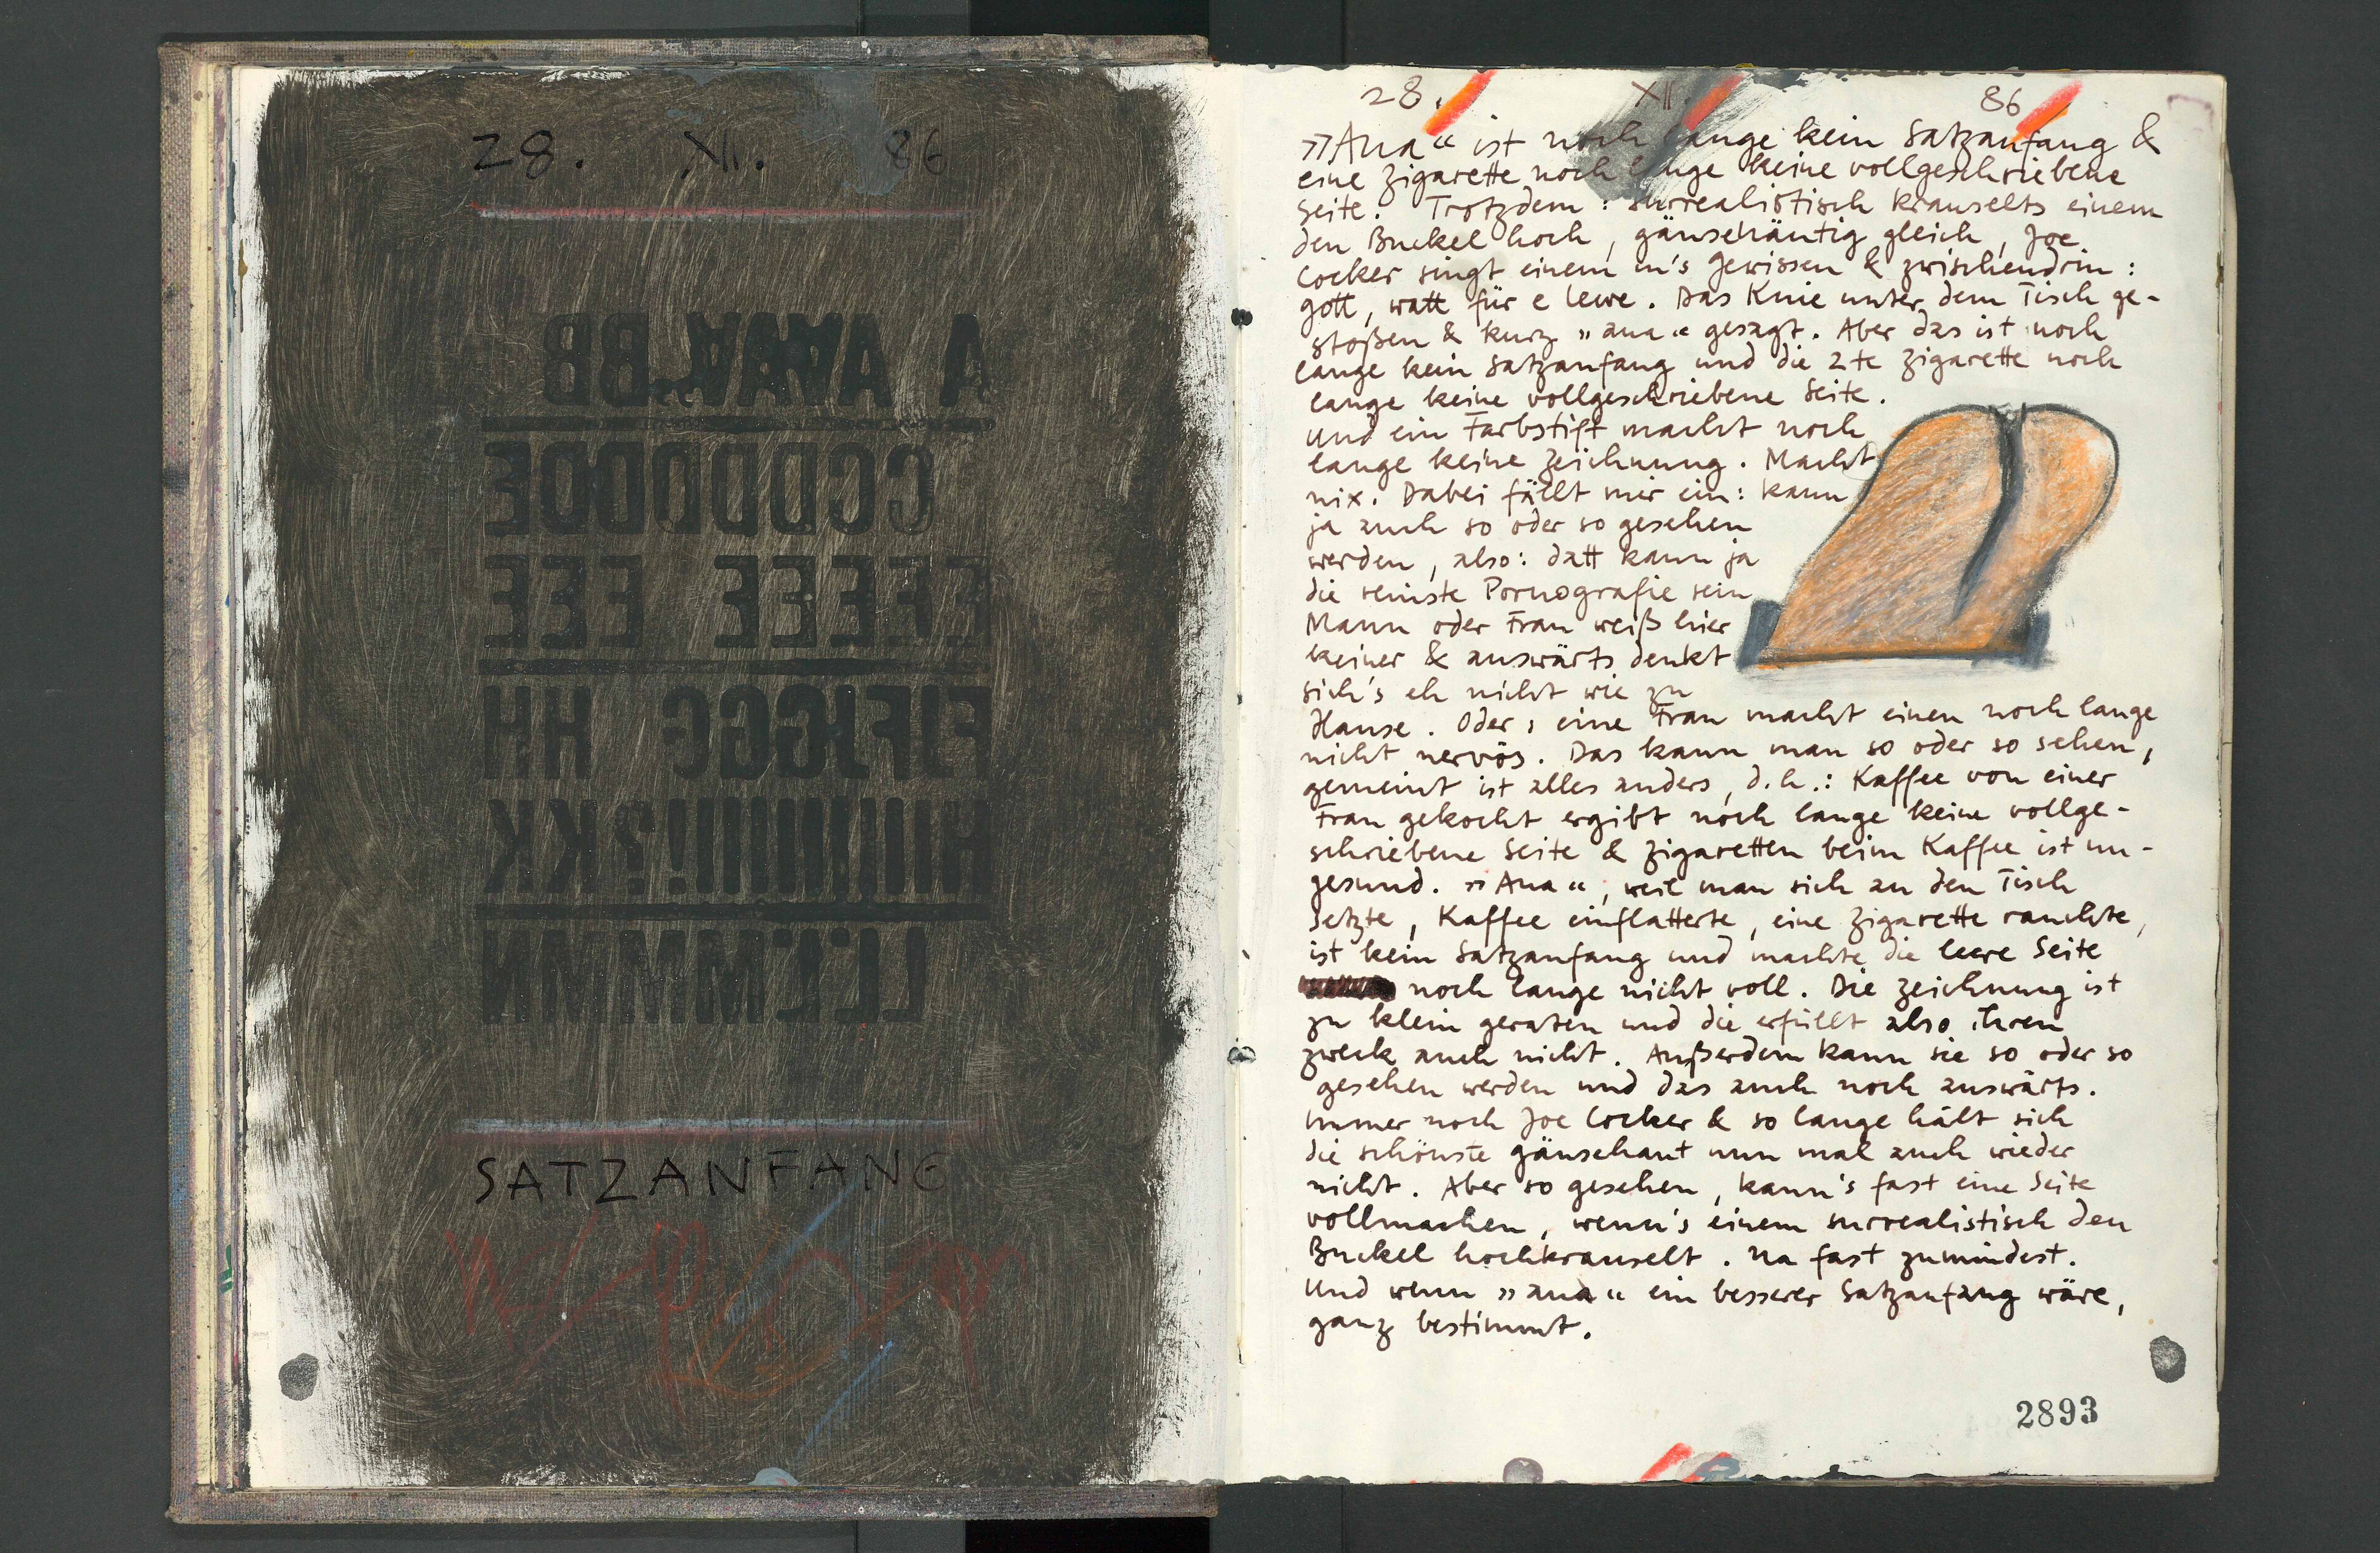 28. XII. 86
A AAAAA.BB
CCDDDDE
EEEEEE EEE
HH
KK
SATZANFANG
28. XII. 86
»Aua« ist noch lange kein Satzanfang &
eine Zigarette noch lange keine vollgeschriebene
Seite. Trotzdem: surrealistisch krauselts einem
den Buckel hoch, gänsehäutig gleich, Joe
Cocker singt einem in's Gewissen & zwischendrin:
gott, watt für e lewe. Das Knie unter dem Tisch ge-
stoßen & kurz »aua« gesagt. Aber das ist noch
lange kein Satzanfang und die 2te Zigarette noch
lange keine vollgeschriebene Seite.
Und ein Farbstift macht noch
lange keine Zeichnung. Macht
nix. Dabei fällt mir ein: kann
ja auch so oder so gesehen
werden, also: datt kann ja
die reinste Pornografie sein
Mann oder Frau weiß hier
keiner & auswärts denkt
sich's eh nicht wie zu
Hause. Oder: eine Frau macht einen noch lange
nicht nervös. Das kann man so oder so sehen,
gemeint ist alles anders, d.h.: Kaffee von einer
Frau gekocht ergibt noch lange keine vollge-
schriebene Seite & Zigaretten beim Kaffee ist un-
gesund. »Aua«, weil man sich an den Tisch
setzte, Kaffee einflatterte, eine Zigarette rauchte,
ist kein Satzanfang und machte die leere Seite
noch lange nicht voll. Die Zeichnung ist
zu klein geraten und die erfüllt also ihren
Zweck auch nicht. Außerdem kann sie so oder so
gesehen werden und das auch noch auswärts.
Immer noch Joe Cocker & so lange hält sich
die schönste gänsehaut nun mal auch wieder
nicht. Aber so gesehen, kann's fast eine Seite
vollmachen, wenn's einem surrealistisch den
Buckel hochkrauselt. Na fast zumindest.
Und wenn »aua« ein besserer Satzanfang wäre,
ganz bestimmt.
2893